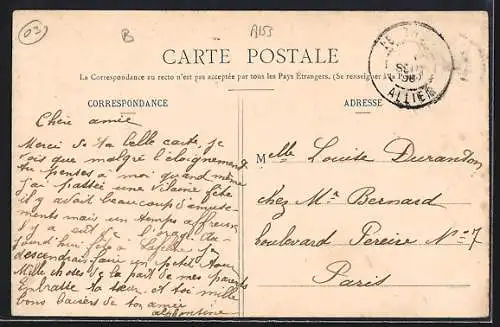 03
B
A153
CARTE POSTALE
La Correspondance au recto n'est pas acceptée par tous les Pays Étrangers. (Se renseigner à la Poste)
CORRESPONDANCE
ADRESSE
ALLIER
Chère amie
Merci de ta belle carte, je
vois que malgré l'éloignement
tu penses à moi quand même
j'ai passée une vilaine fête
il y avait beaucoup d'amuse-
ments mais un temps affreux
il y a eut de l'orage. Au-
jourd'hui fête à je
descendrais faire un petit tour
Mille choses de la part de mes parents
Embrasse ta sœur. A toi mille
bons baisers de ton amie
alphonsine
Melle Louise Durandon
chez Mr Bernard
boulevard Pereire No 7
Paris